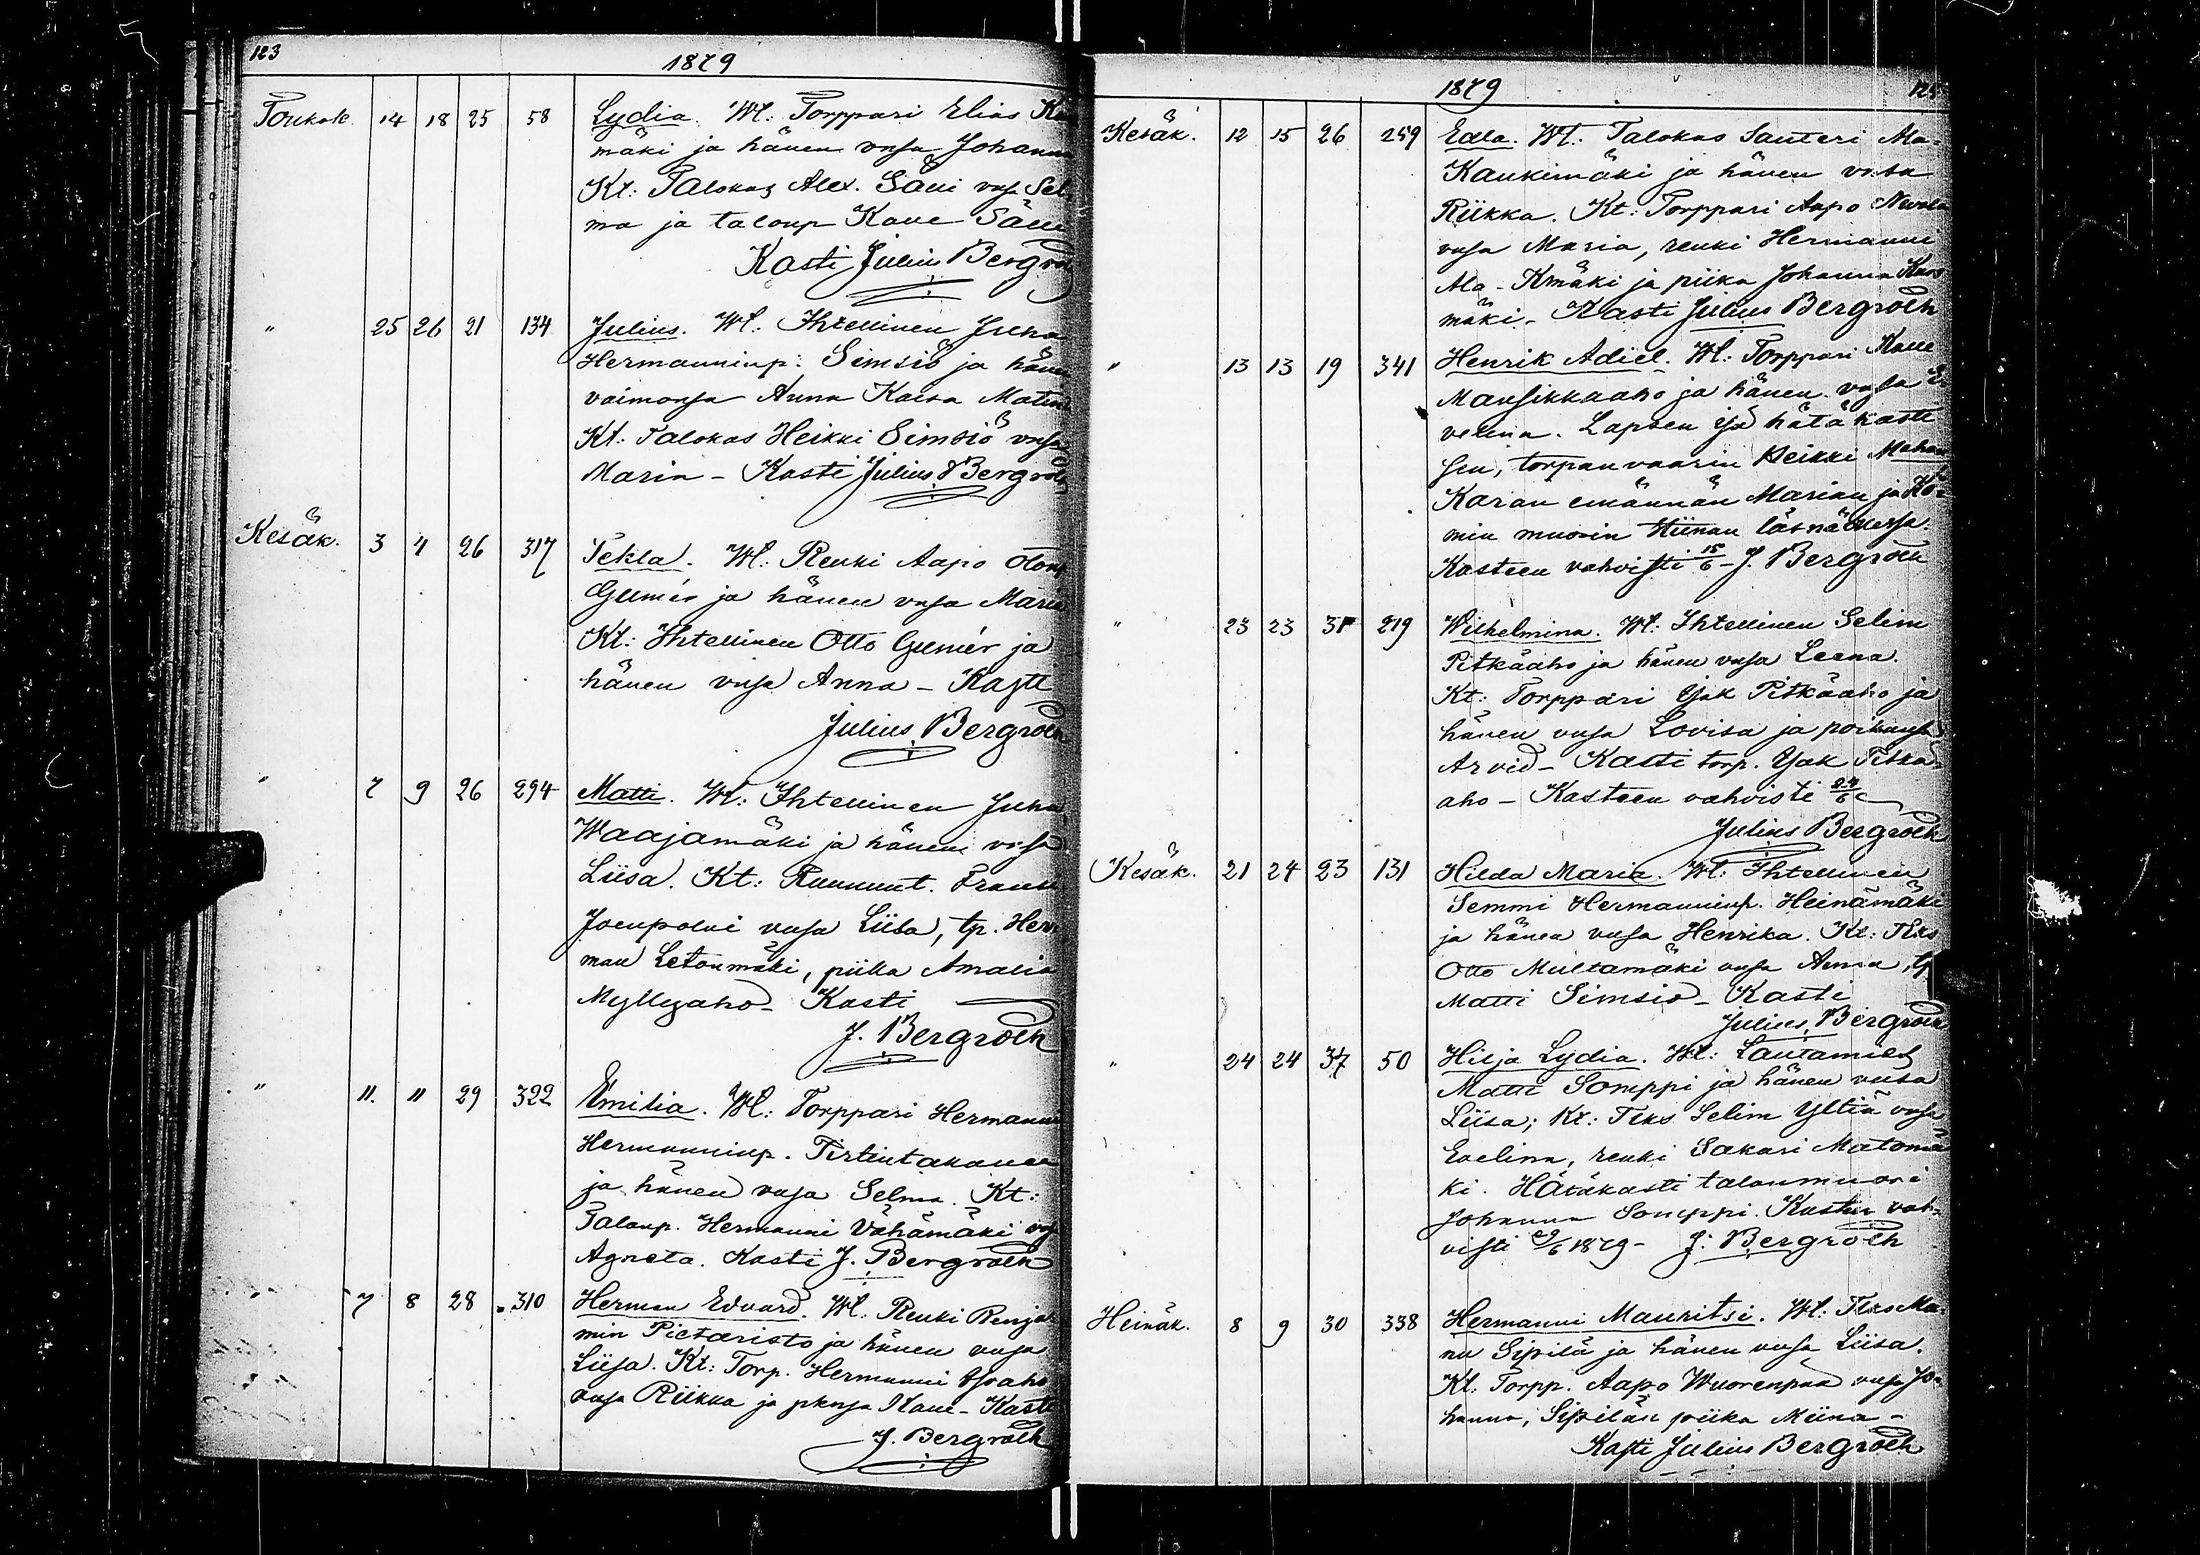 123
1879
Toukok. 14 18 25 58 Lydia. Wl. Torppari Elias
mäki ja hänen vmsa Johanna
Kt: Talokas Alex. Säui vmsa Sel-
ma ja taloup Kalle
Kasti Julius Bergroth
" 25 26 21 134 Julius. Wl. Ihtellinen Juha
Hermanninp: Simsiö ja hänen
vaimonsa Anna Kaisa
Kt: Talokas Heikki Simsiö vmsa
Maria - Kasti Julius Bergroth
Kesäk. 3 4 26 317 Tekla. Wl: Renki Aapo
Gumér ja hänen vmsa Maria
Kt: Ihtellinen Otto Gumér ja
hänen vmsa Anna - Kasti
Julius Bergroth
" 7 9 26 294 Matti. Wl: Ihtellinen Juha
Waajamäki ja hänen vmsa
Liisa. Kt:
vmsa Liisa, tp. Her-
man piika Amalia
Myllyaho - Kasti
J. Bergroth
" 11. 11 29 322 Emilia. Wl: Torppari Hermanni
Hermanninp.
ja hänen vmsa Selma. Kt:
Taloup. Hermanni Vähämäki
Agneta. Kasti J. Bergroth
" 7 8 28 310 Herman Edvard. Wl. Renki Benja-
min Pietaristo ja hänen vmsa
Liisa. Kt: Torp. Hermanni
vmsa Riikka ja Kalle - Kasti
J. Bergroth
1879
Kesäk. 12 15 26 259 Edla. Wl: Talokas Santeri Ala-
Kaukimäki ja hänen vmsa
Riikka. Kt: Torppari Aapo
vmsa Maria, renki Hermanni
Ala-Kmäki ja piika Johanna
mäki - Kasti Julius Bergroth
" 13 13 19 341 Henrik Adiel. Wl: Torppari Kalle
Mansikkaaho ja hänen vmsa E-
velina. Lapsen isä hätäkasti
sen, torpanvaarin Heikki
Karan emännän Marian ja
min muorin Hiinan läsnäollessa
Kasteen vahvisti 15/6 - J. Bergroth
" 23 23 31 219 Wilhelmina. Wl: Ihtellinen Selim
Pitkäaho ja hänen vmsa Leena.
Kt: Torppari Isak Pitkäaho ja
hänen vmsa Lovisa ja poikansa
Arvid - Kasti torp. Isak Pitkä-
aho - Kasteen vahvisti 24/6
Julius Bergroth
Kesäk. 21 24 23 131 Hilda Maria. Wl: Ihtellinen
Semmi Hermanninp. Heinämäki
ja hänen vmsa Henrika. Kt: Tlks
Otto Multamäki vmsa Anna, tp
Matti Simsiö - Kasti
Julius Bergroth
" 24 24 37 50 Hilja Lydia. Wl: Lautamies
Matti Somppi ja hänen vmsa
Liisa; Kt: Tlks Selim vmsa
Evelina, renki Sakari Matomä-
ki. Hätäkasti talonmuori
Johanna Somppi. Kasteen vah-
visti 29/6 1879 - J. Bergroth
Heinäk. 8 9 30 338 Hermanni Mauritsi. Wl. Tlks Ma-
nu Sipilä ja hänen vmsa Liisa.
Kt: Torpp. Aapo Wuorenpää vmsa Jo-
hanna, Sipilän piika Miina -
Kasti Julius Bergroth